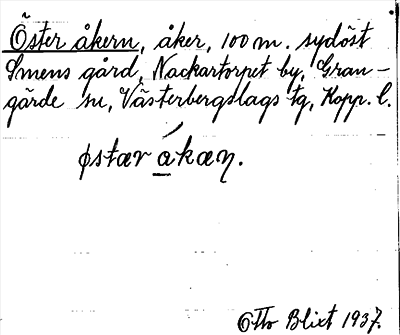 Öster åkern, åker, 100 m. sydöst
Smens gård, Nackartorpet by, Gran-
gärde sn, Västerbergslags tg, Kopp. l.
østær ákæɳ.
Otto Blixt 1937.